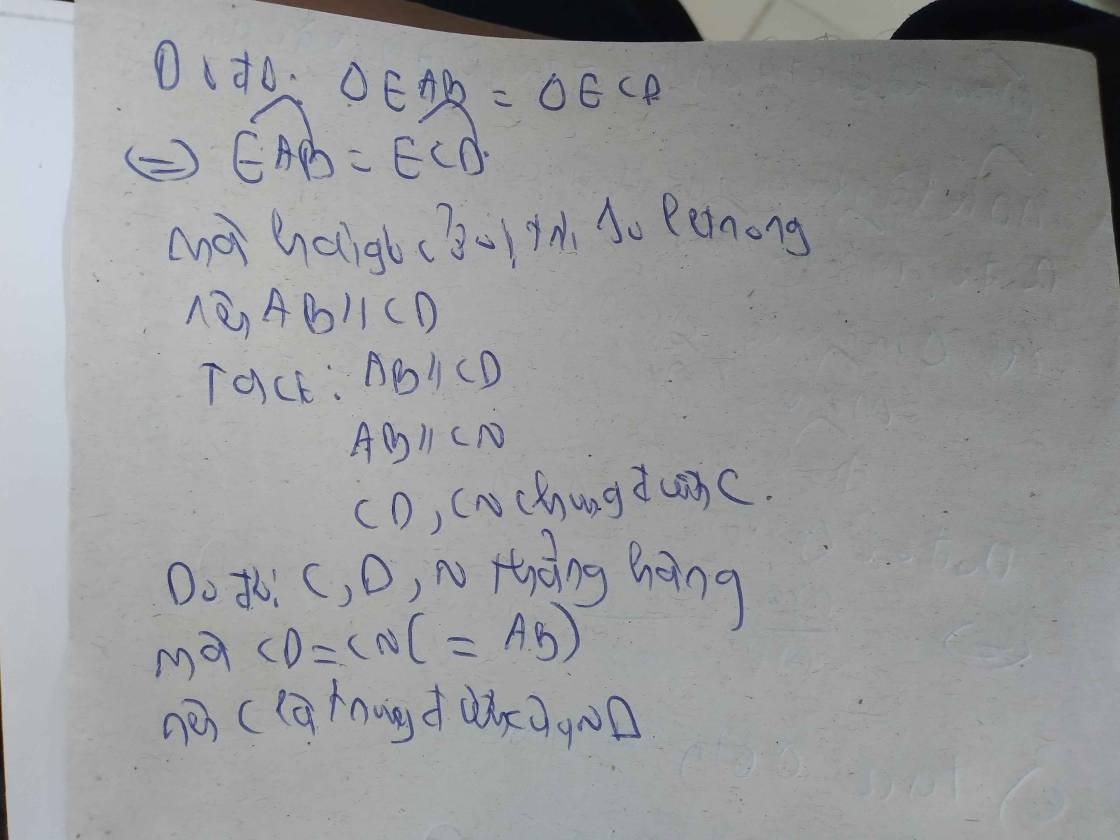 Do đó: ΔEAB = ΔECD
=> EAB = ECD
mà hai góc ở vị trí so le trong
nên AB // CD
Ta có: AB // CD
AB // CN
CD, CN chung điểm C.
Do đó: C, D, N thẳng hàng
mà CD = CN ( = AB)
nên C là trung điểm của ND